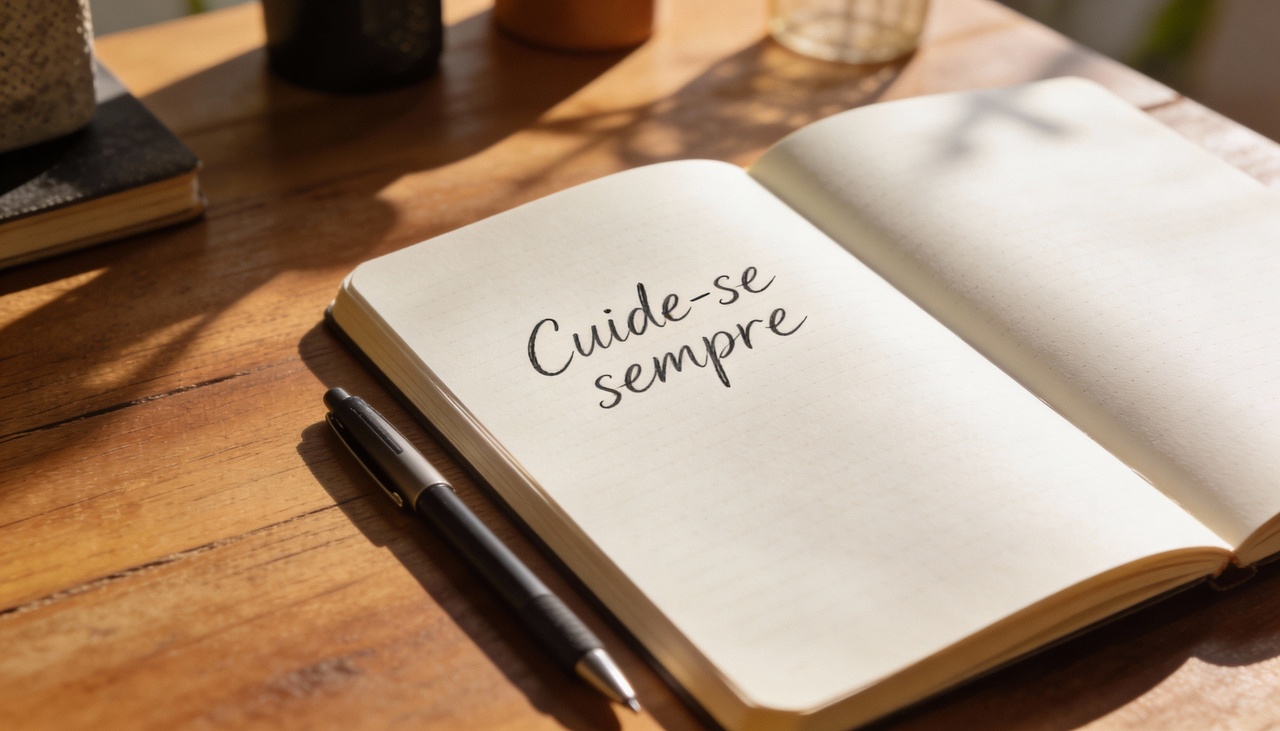 Cuide-se
sempre